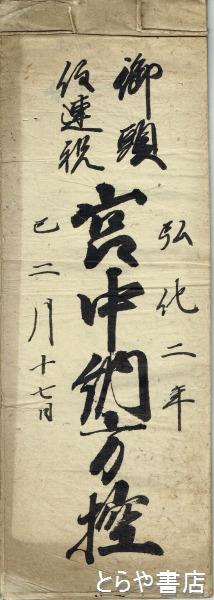 弘化二年
御頭
役連税
宮中納方控
巳二月十七日
とらや書店